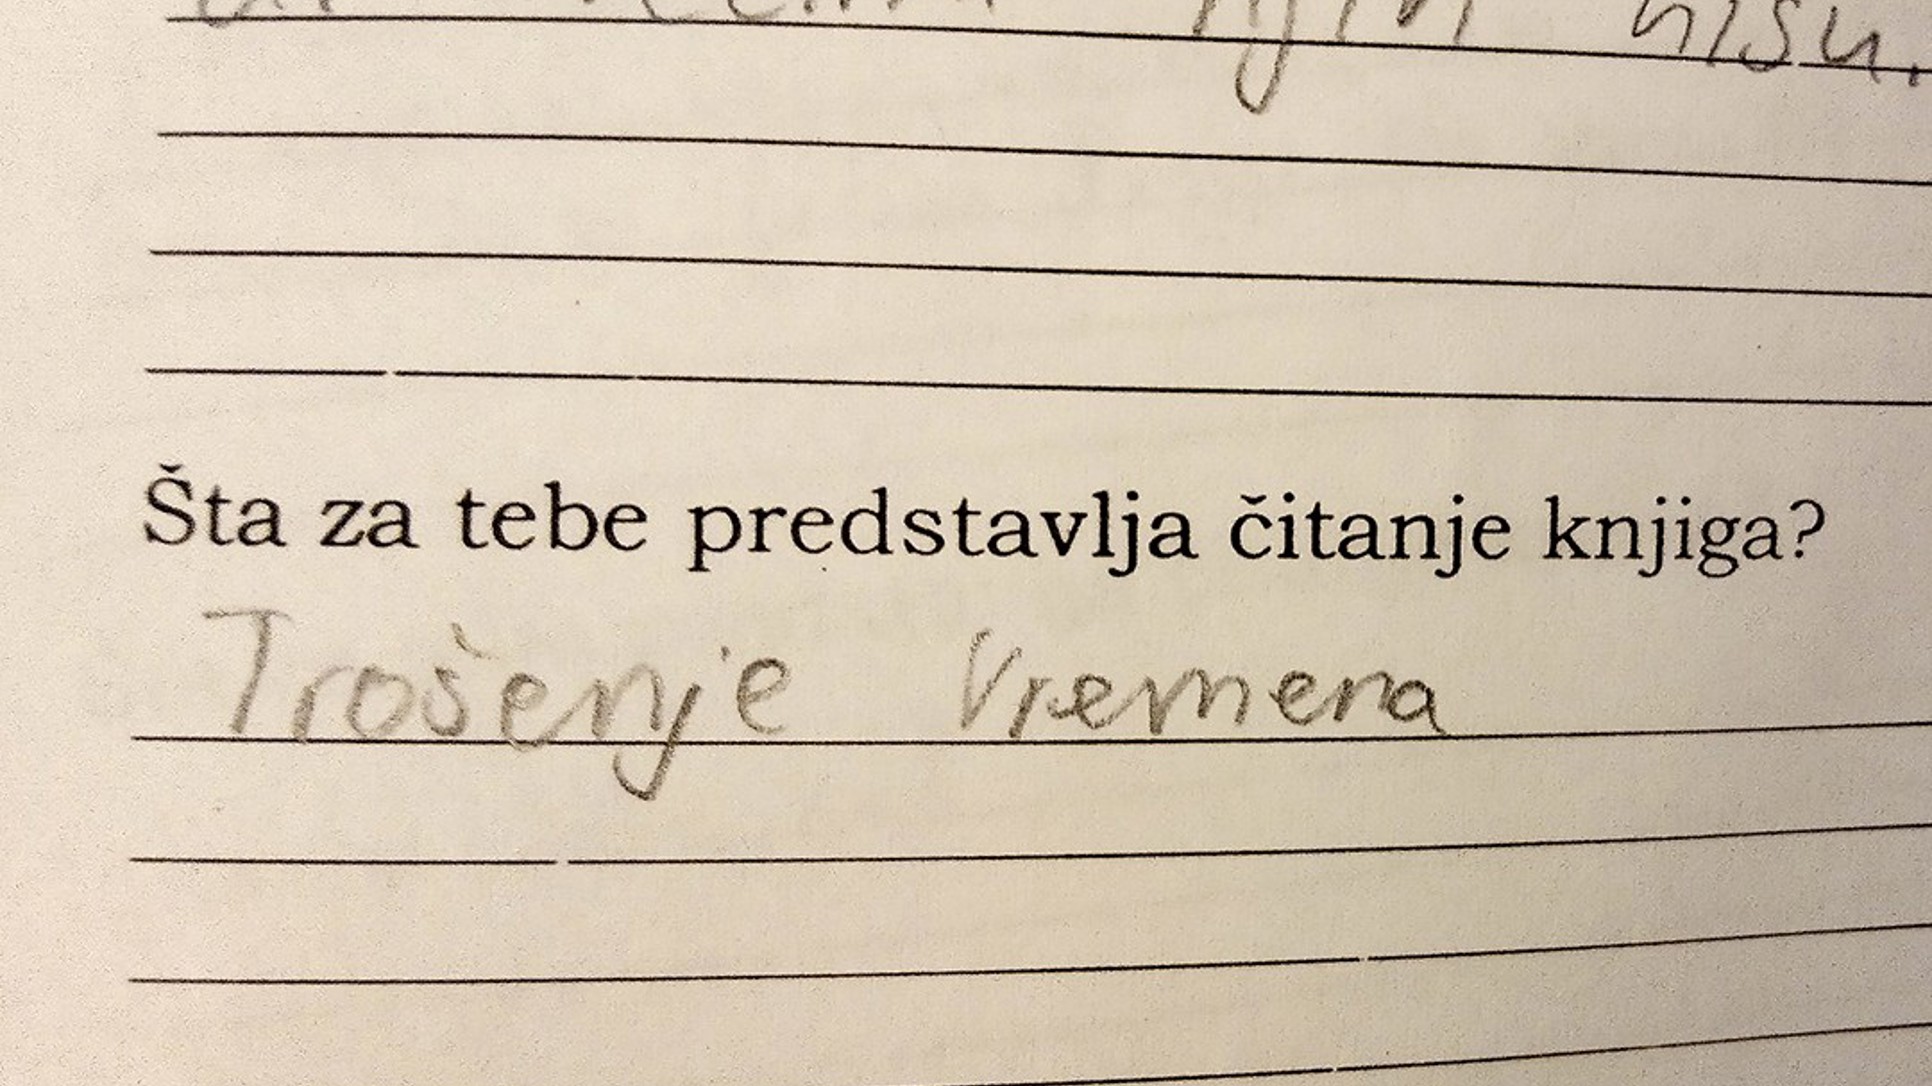 njih nisu.
Šta za tebe predstavlja čitanje knjiga?
Trošenje Vremena